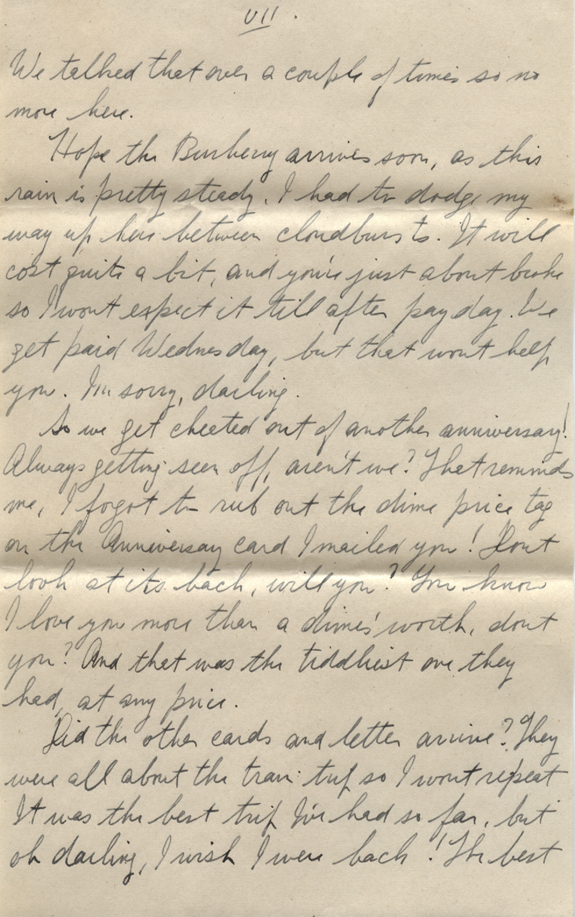 VII.
We talked that over a couple of times so no
more here.
Hope the Burberry arrives soon, as this
rain is pretty steady. I had to dodge my
way up here between cloudbursts. It will
cost quite a bit, and you're just about broke
so I wont expect it till after pay day. We
get paid Wednesday, but that wont help
you. I'm sorry, darling.
So we get cheeted out of another anniversary!
Always getting seen off, aren't we? That reminds
me, I fogot to rub out the dime price tag
on the Anniversary card I mailed you! Dont
look at its back, will you? You know
I love you more than a dimes' worth, dont
you? And that was the tiddliest one they
had, at any price.
Did the other cards and letter arrive? They
were all about the train trip so I wont repeat
It was the best trip I've had so far, but
oh darling, I wish I were back! The best